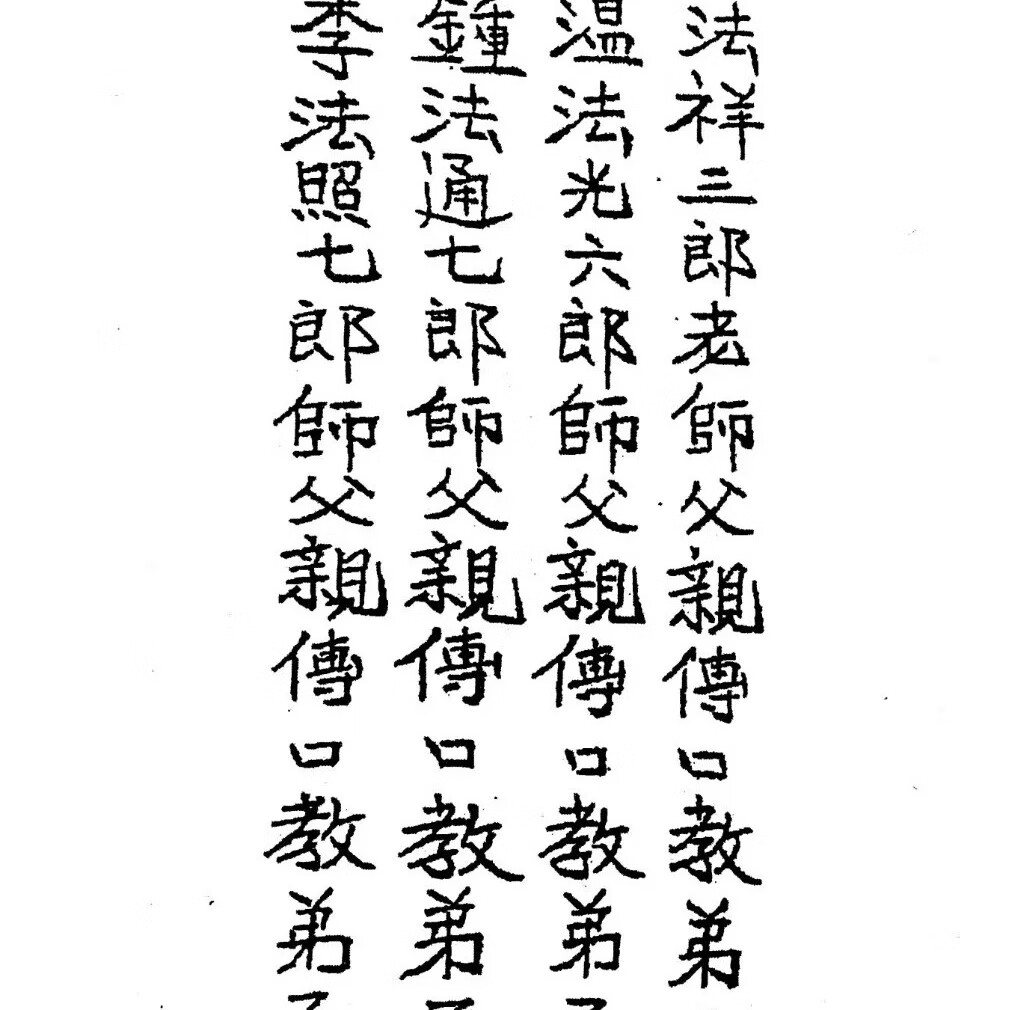 法祥三郎老師父親傳口教弟
温法光六郎師父親傳口教弟子
鍾法通七郎師父親傳口教弟子
李法照七郎師父親傳口教弟子